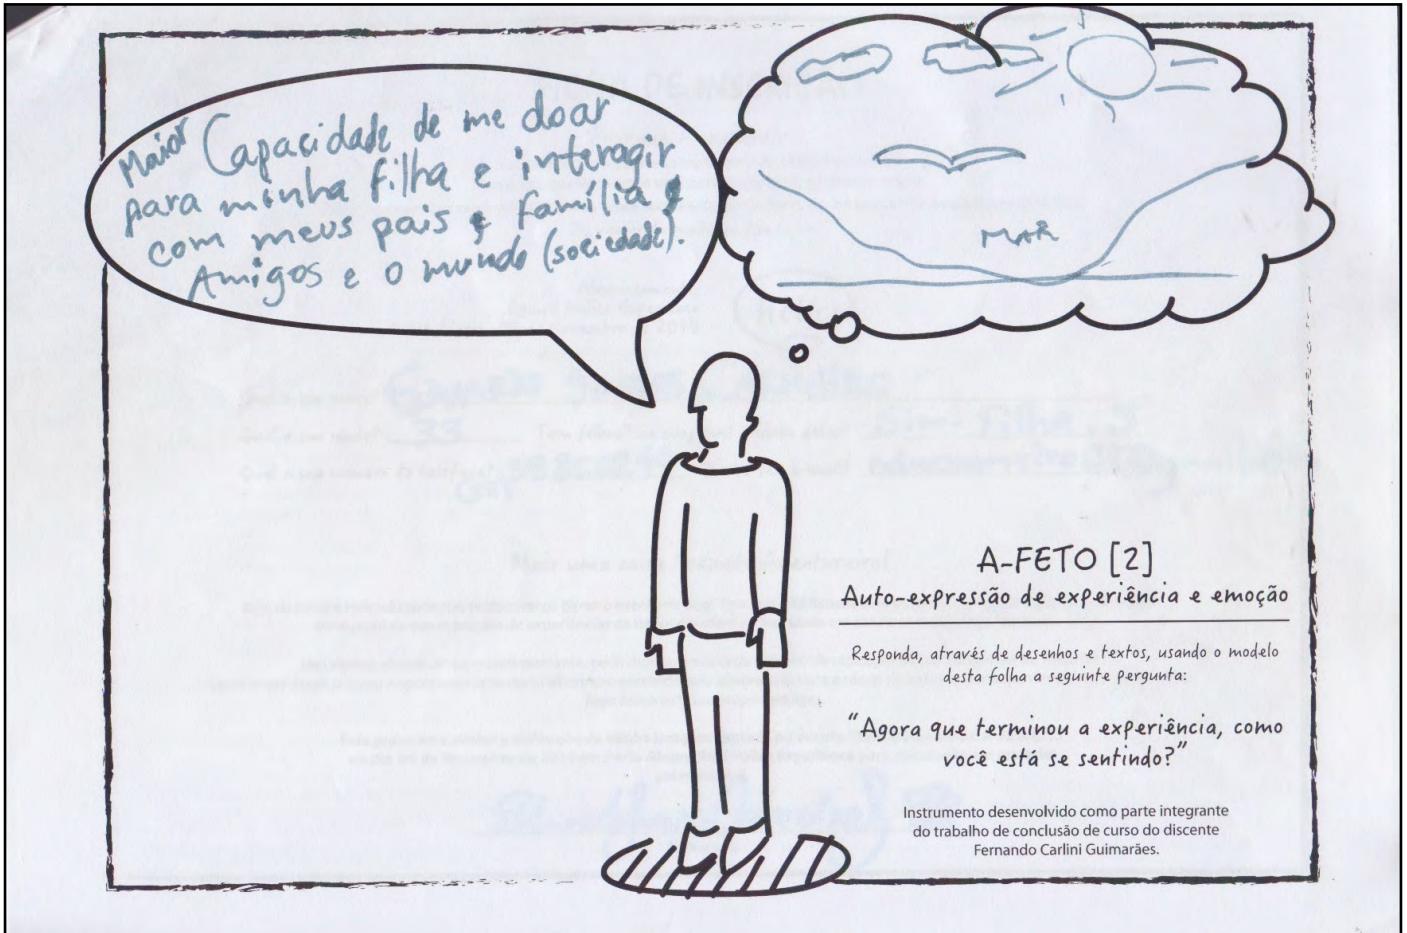 Maior Capacidade de me doar
para minha filha e interagir
com meus pais e família
Amigos e o mundo (sociedade).
MAR
A-FETO [2]
Auto-expressão de experiência e emoção
Responda, através de desenhos e textos, usando o modelo
desta folha a seguinte pergunta:
"Agora que terminou a experiência, como
você está se sentindo?"
Instrumento desenvolvido como parte integrante
do trabalho de conclusão de curso do discente
Fernando Carlini Guimarães.